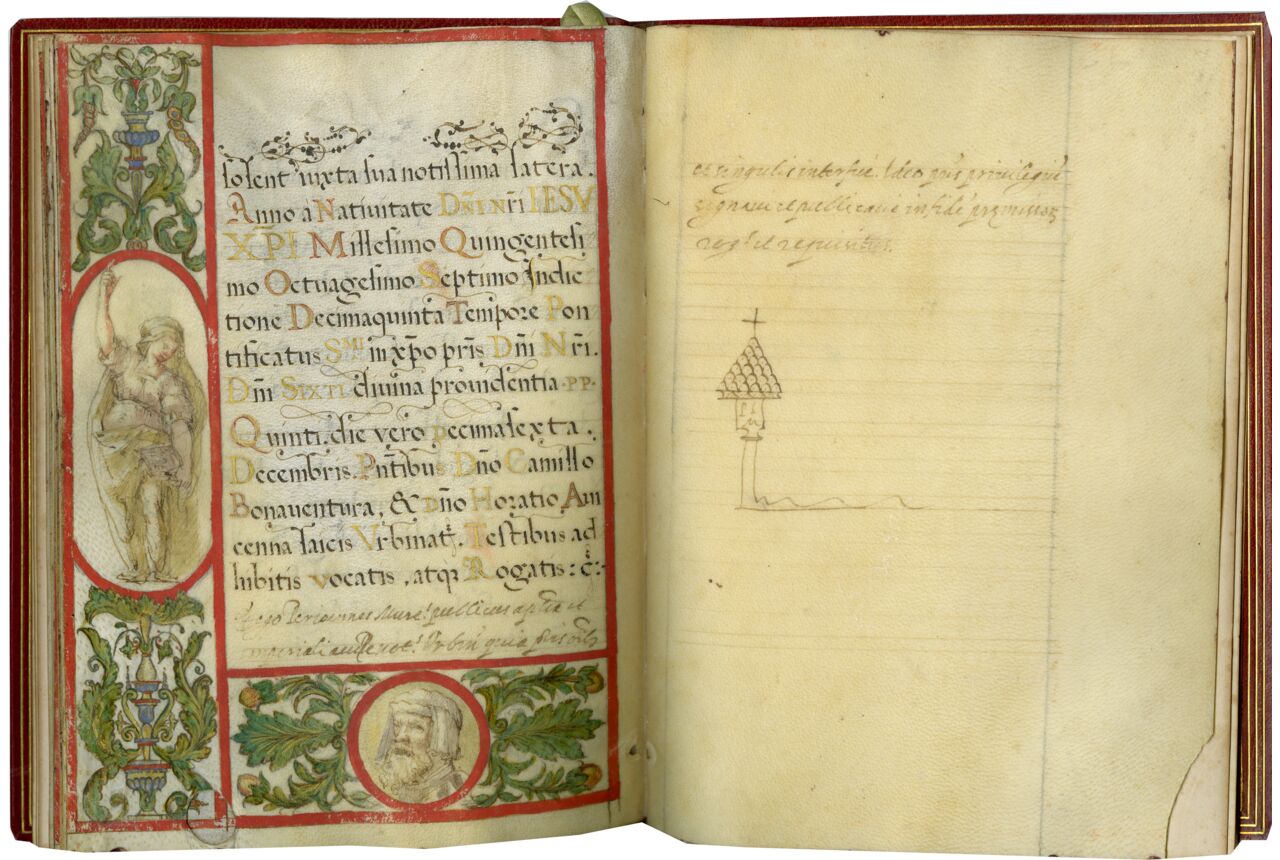 solent iuxta sua notissima latera.
Anno a Nativitate Dñi Nr̄i IESV
XP̄I Millesimo Quingentesi
mo Octuagesimo Septimo Indic
tione Decimaquinta Tempore Pon
tificatus Sᴹᴵ in xp̄o pr̄is Dñi Nr̄i.
Dñi Sixti divina providentia ·PP·
Quinti. die vero decimasexta.
Decembris. Pñtibus Dño Camillo
Bonaventura, & Dño Horatio Am
cenna laicis Vrbinat. Testibus ad
hibitis vocatis, atq̨ Rogatis: &:
Ego publicus aplīca et
imperiali Vrbin quia
et singulis interfui. Ideo privilegiū
signavi et publicavi in fidē premissor
rog.ᵗ et requisitus.